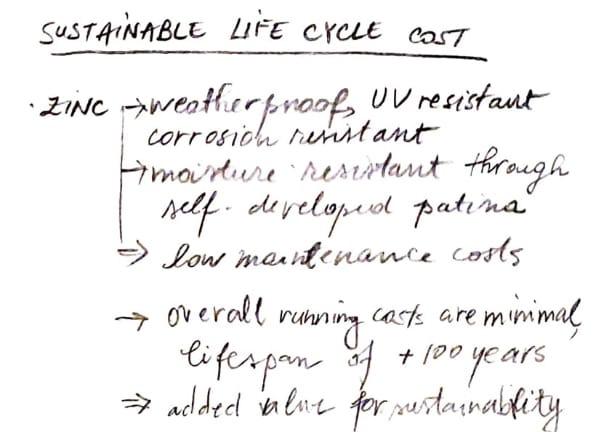 SUSTAINABLE LIFE CYCLE COST
· ZINC → weatherproof, UV resistant
corrosion resistant
→ moisture resistant through
self-developed patina
⇒ low maintenance costs
→ overall running costs are minimal,
lifespan of +100 years
⇒ added value for sustainability